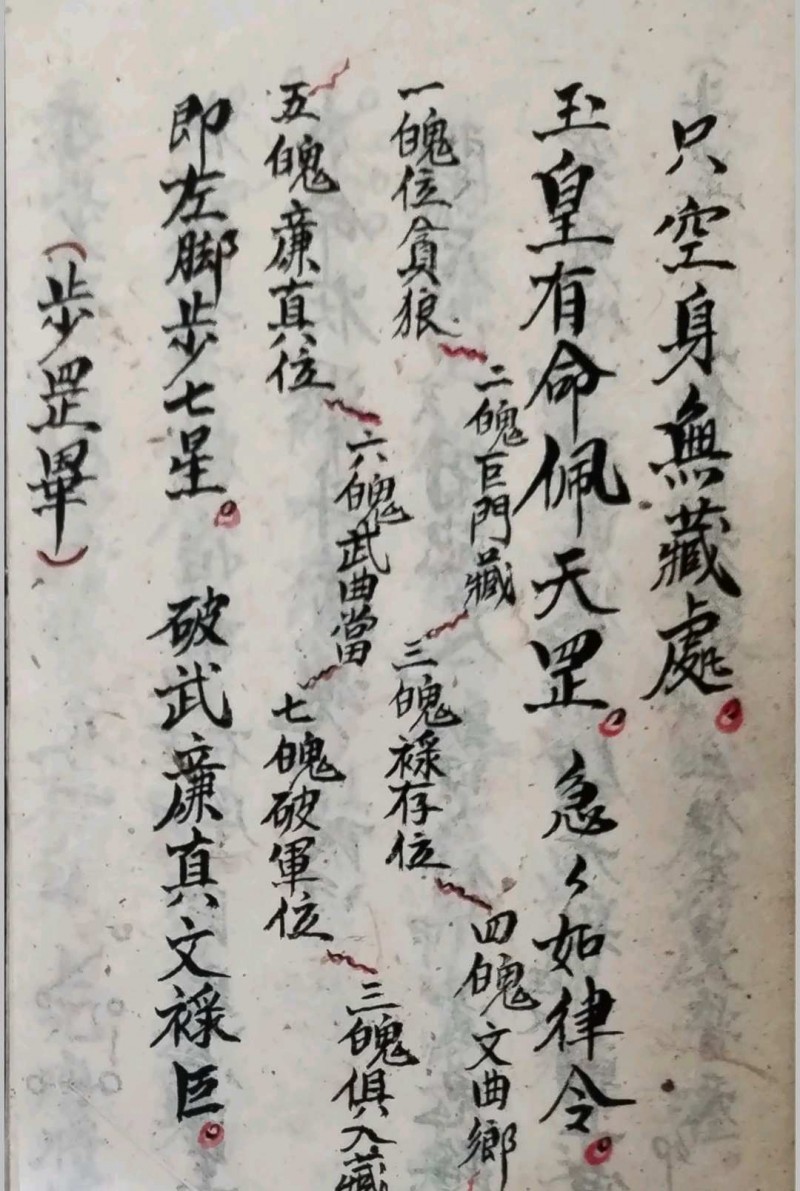 只空身無藏處。
玉皇有命佩天罡。急々如律令。
一魄位貪狼
二魄巨門藏
三魄祿存位
四魄文曲鄉
五魄廉真位
六魄武曲當
七魄破軍位
三魄俱入藏
即左脚步七星。破武廉真文祿巨。
(步罡畢)